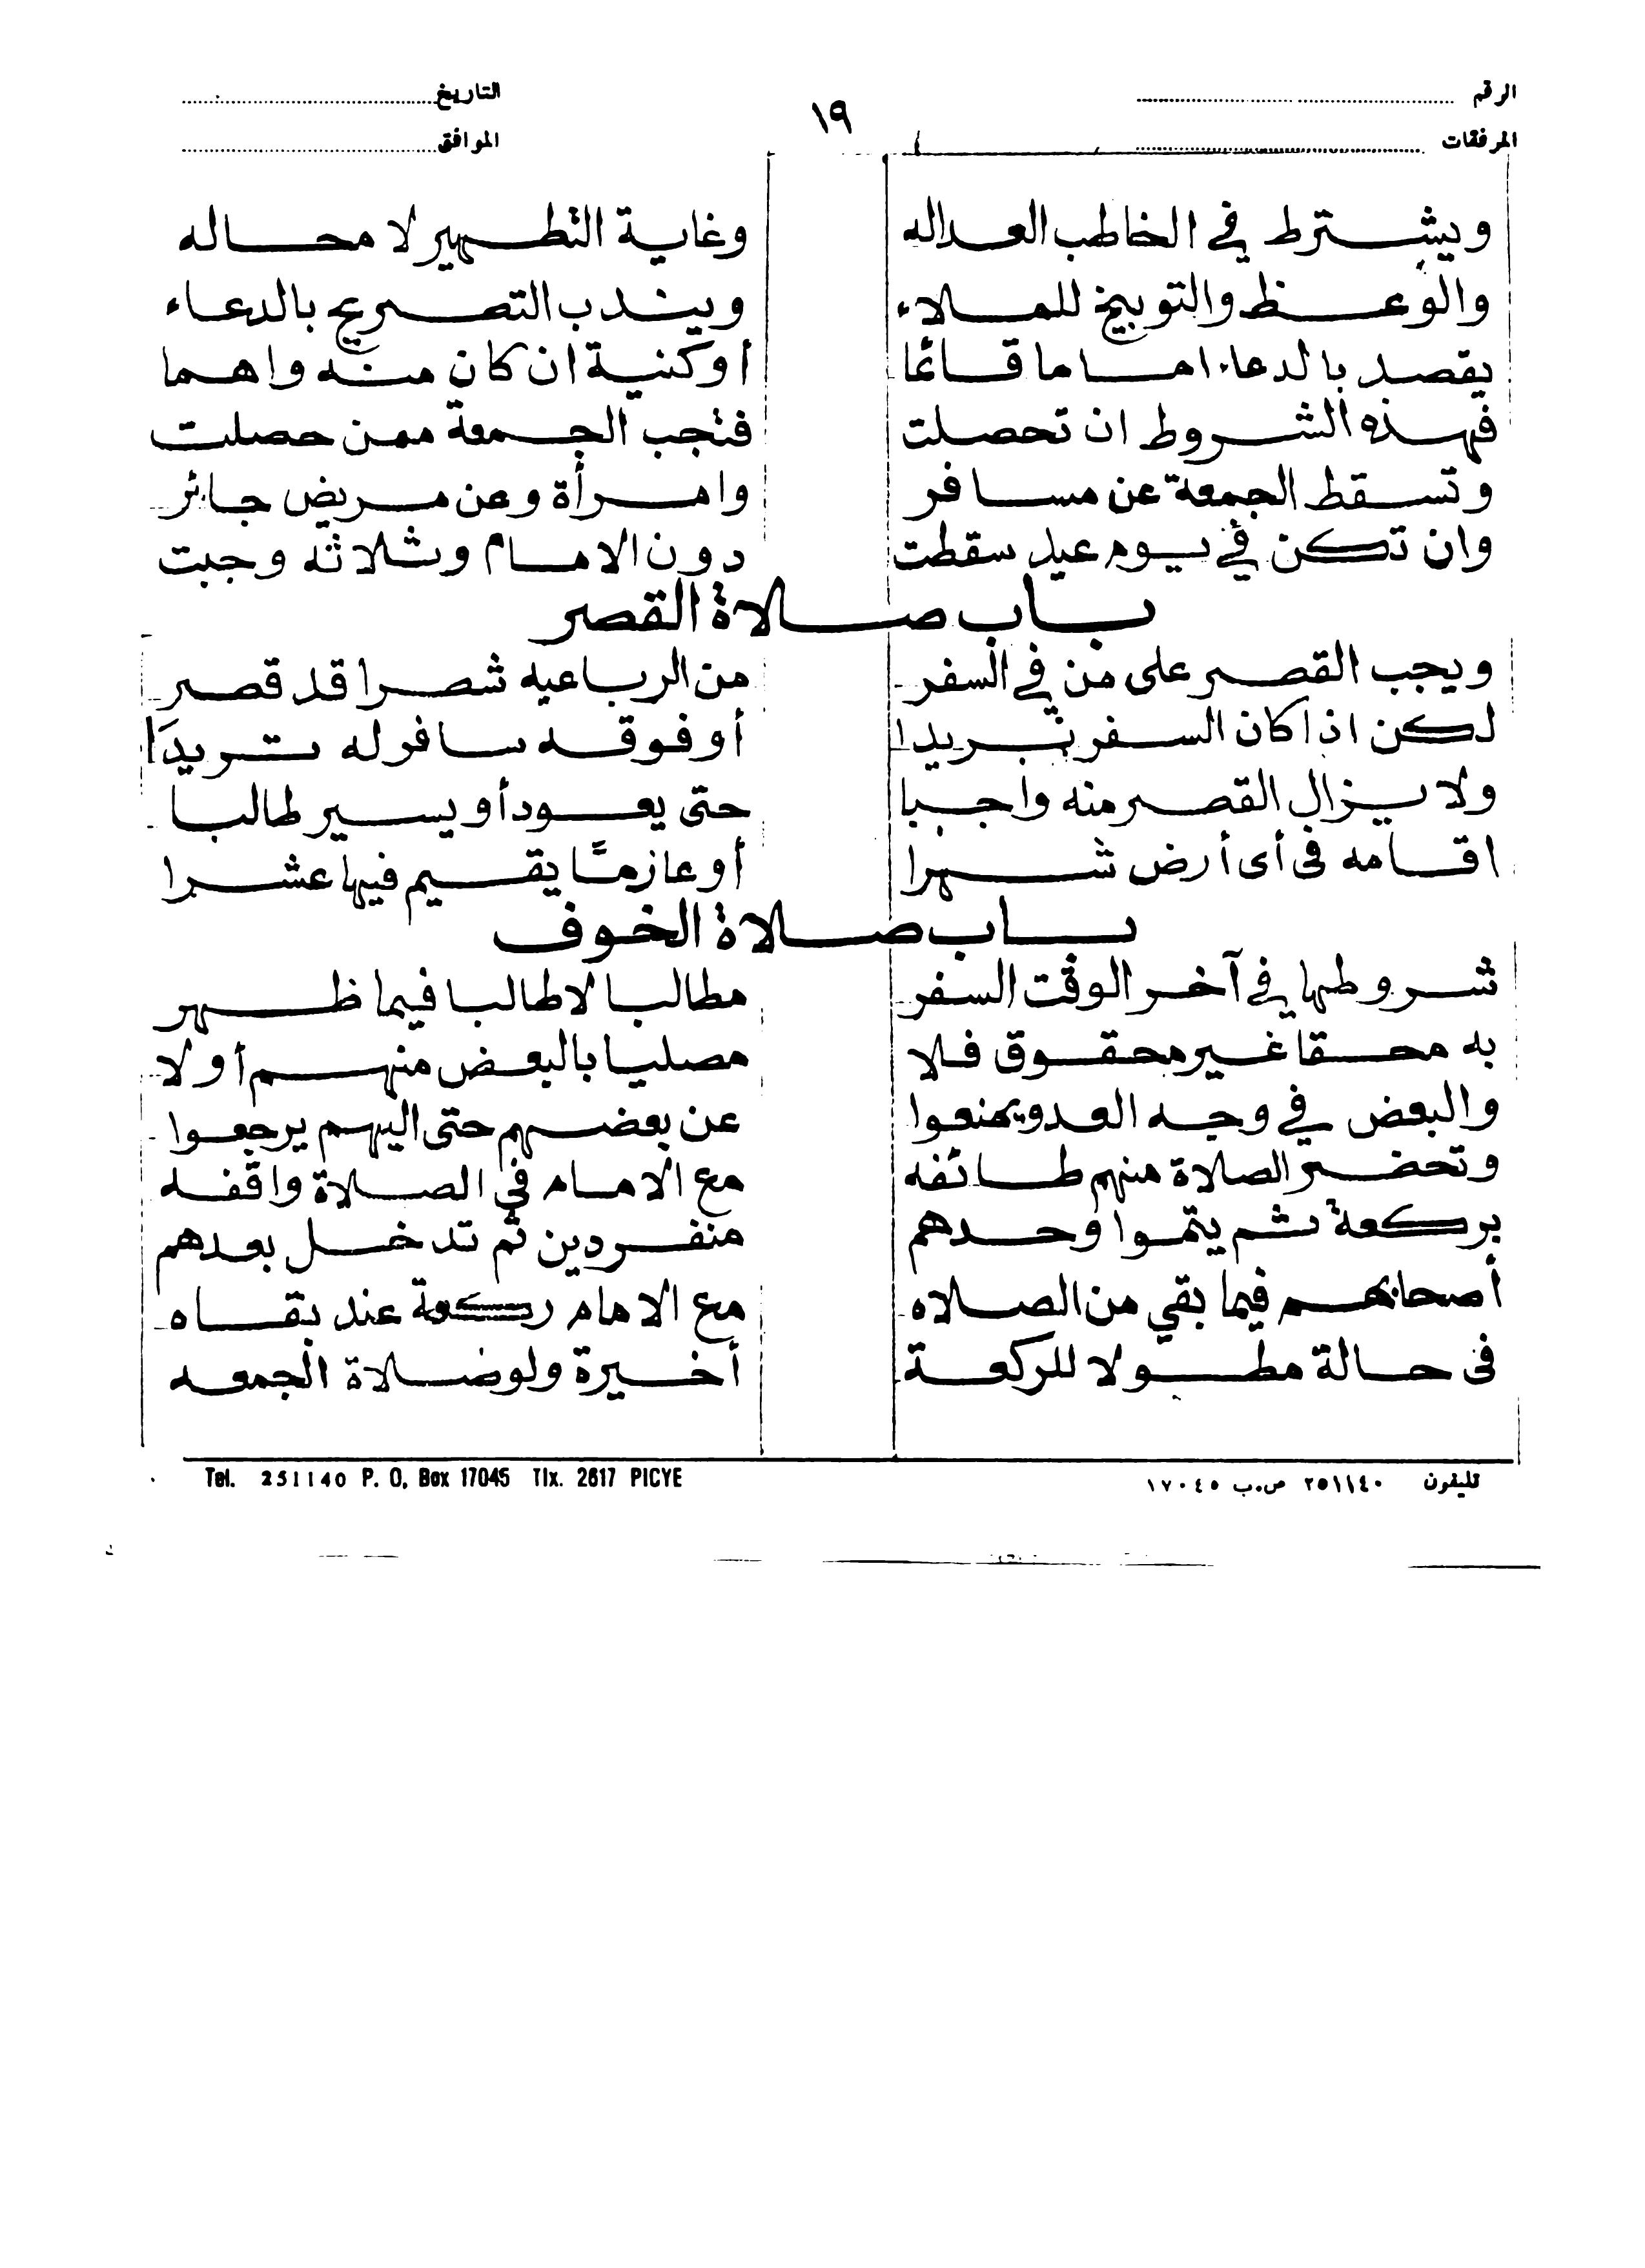 الرقم
التاريخ
١٩
المرفقات
الموافق
ويشترط في الخاطب العداله وغاية التطهير لا محاله
والوعظ والتوبيخ للملاء ويندب التصريح بالدعاء
يقصد بالدعاء اماما قائما أو كنية ان كان منه واهما
فهذه الشروط ان تحصلت فتجب الجمعة ممن حصلت
وتسقط الجمعة عن مسافر وامرأة وعن مريض جائر
وان تكن في يوم عيد سقطت دون الامام وثلاثه وجبت
باب صلاة القصر
ويجب القصر على من في السفر من الرباعيه شصرا قد قصر
لكن اذا كان السفر بريدا أو فوقه سافر له تريدا
ولا يزال القصر منه واجبا حتى يعود أو يسير طالبا
اقامه في أى أرض شهرا أو عازما يقيم فيها عشرا
باب صلاة الخوف
شروطها في آخر الوقت السفر مطالبا لا طالبا فيما ظهر
به محقا غير محقوق فلا مصليا بالبعض منهم أولا
والبعض في وجه العدو يمنعوا عن بعضهم حتى اليهم يرجعوا
وتحضر الصلاة منهم طائفه مع الامام في الصلاة واقفه
بركعة ثم يتموا وحدهم منفردين ثم تدخل بعدهم
أصحابهم فيما بقي من الصلاه مع الامام ركعة عند بقاه
في حالة مطولا للركعة أخيرة ولو صلاة الجمعه
تليفون ٢٥١١٤٠ ص.ب ١٧٠٤٥
Tel. 251140 P. O, Box 17045 Tlx. 2617 PICYE